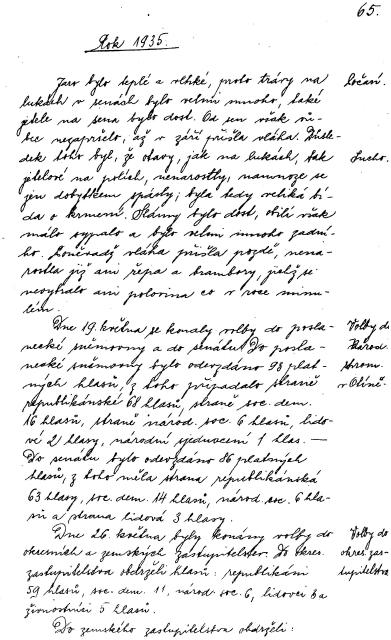 65.
Rok 1935.
Jaro bylo teplé a vlhké, proto trávy na
lukách v senách bylo velmi mnoho, také
jetele na sena bylo dost. Od sen však vů-
bec nezapršelo, až v září přišla vláha. Násle-
dek toho byl, že otavy, jak na lukách, tak
jetelové na polích, nenarostly, namnoze se
jen dobytkem spásly; byla tedy veliká bí-
da o krmení. Slámy bylo dost, obilí však
málo sypalo a bylo velmi mnoho zadní-
ho. Poněvadž vláha přišla pozdě, nena-
rostla již ani řepa a brambory, jichž se
nevybralo ani polovina co v roce minu-
lém.
Počasí.
Sucho.
Dne 19. května se konaly volby do posla-
necké sněmovny a do senátu. Do posla-
necké sněmovny bylo odevzdáno 93 plat-
ných hlasů, z toho připadalo straně
republikánské 68 hlasů, straně soc. dem.
16 hlasů, straně národ. soc. 6 hlasů, lido-
vé 2 hlasy, národní sjednocení 1 hlas. —
Do senátu bylo odevzdáno 86 platných
hlasů, z toho měla strana republikánská
63 hlasy, soc. dem. 14 hlasů, národ. soc. 6 hla-
sů a strana lidová 3 hlasy.
Volby do
Národ.
Dne 26. května byly konány volby do
okresních a zemských zastupitelstev. Do okres.
zastupitelstva obdrželi hlasů: republikáni
59 hlasů, soc. dem. 11, národ. soc. 6, lidovci 6 a
živnostníci 5 hlasů.
Do zemského zastupitelstva obdrželi:
Volby do
okres. zas-
tupitelstva